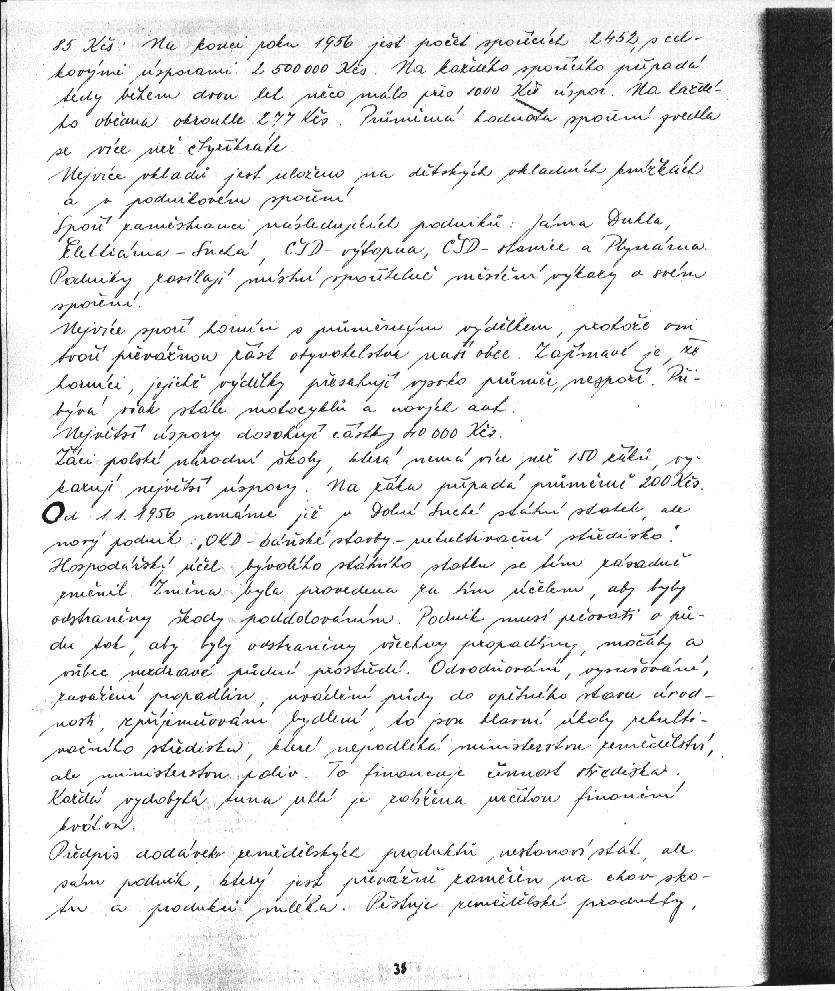 85 Kčs. Na konci roku 1956 jest počet spořících 2452, s cel-
kovými úsporami 2 500 000 Kčs. Na každého spořícího připadá
tedy během dvou let něco málo přes 1000 Kčs úspor. Na každé-
ho občana okrouhle 277 Kčs. Průměrná hodnota spoření zvedla
se více než čtyřikráte.
Nejvíce vkladů jest uloženo na dětských vkladních knížkách
a v podnikovém spoření.
Spoří zaměstnanci následujících podniků: Jáma Dukla,
Elektrárna-Suchá, ČSD-výtopna, ČSD-stanice a Plynárna.
Podniky zasílají místní spořitelně měsíční výkazy o svém
spoření.
Nejvíce spoří horníci s průměrným výdělkem, protože oni
tvoří převážnou část obyvatelstva naší obce. Zajímavé je, že
horníci, jejichž výdělky přesahují vysoko průměr, nespoří. Při-
bývá však stále motocyklů a nových aut.
Největší úspory dosahují částky 60 000 Kčs.
Žáci polské národní školy, která nemá více než 150 žáků, vy-
kazují největší úspory. Na žáka připadá průměrně 200 Kčs.
Od 1.1. 1956 nemáme již v Dolní Suché státní statek, ale
nový podnik: „OKD-báňské stavby-rekultivační středisko".
Hospodářský účel bývalého státního statku se tím zásadně
změnil. Změna byla provedena za tím účelem, aby byly
odstraněny škody poddolováním. Podnik musí pečovati o pů-
du tak, aby byly odstraněny všechny propadliny, močály a
vůbec nezdravé půdní prostředí. Odvodňování, vysušování,
zavážení propadlin, uvádění půdy do opětného stavu úrod-
nosti, zpříjemňování bydlení, to jsou hlavní úkoly rekulti-
vačního střediska, které nepodléhá ministerstvu zemědělství,
ale ministerstvu paliv. To financuje činnost střediska.
Každá vydobytá tuna uhlí je zatížena určitou finanční
kvótou.
Předpis dodávek zemědělských produktů nestanoví stát, ale
sám podnik, který jest převážně zaměřen na chov sko-
tu a produkci mléka. Pěstuje zemědělské produkty,
38